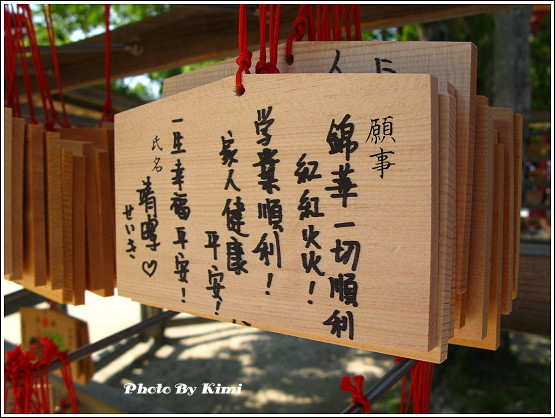 願事
錦華一切順利
紅紅火火！
学業順利！
家人健康
平安！
一生幸福平安！
氏名
せいき
Photo By Kimi